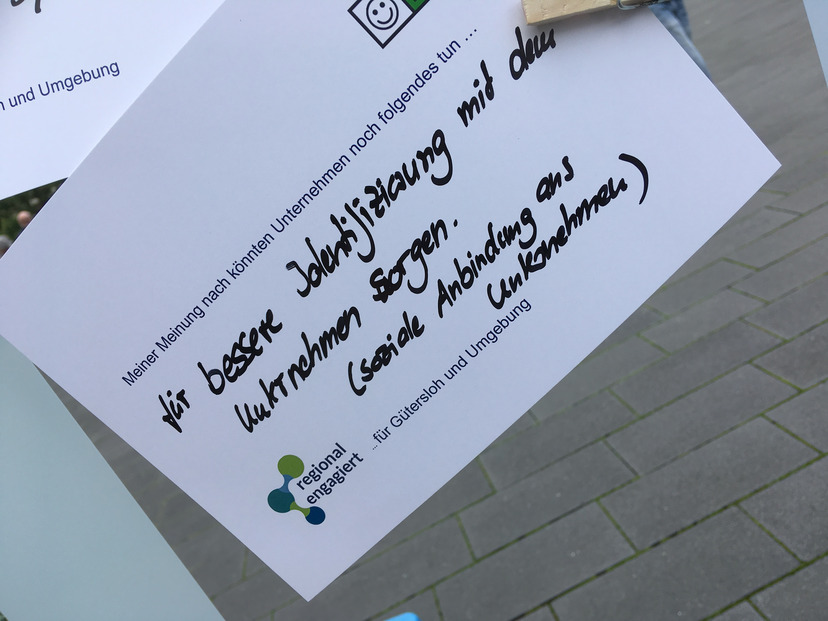 n und Umgebung
Meiner Meinung nach könnten Unternehmen noch folgendes tun ...
für bessere Identifizierung mit dem
Unternehmen sorgen.
(soziale Anbindung ans
Unternehmen)
regional
engagiert
...für Gütersloh und Umgebung